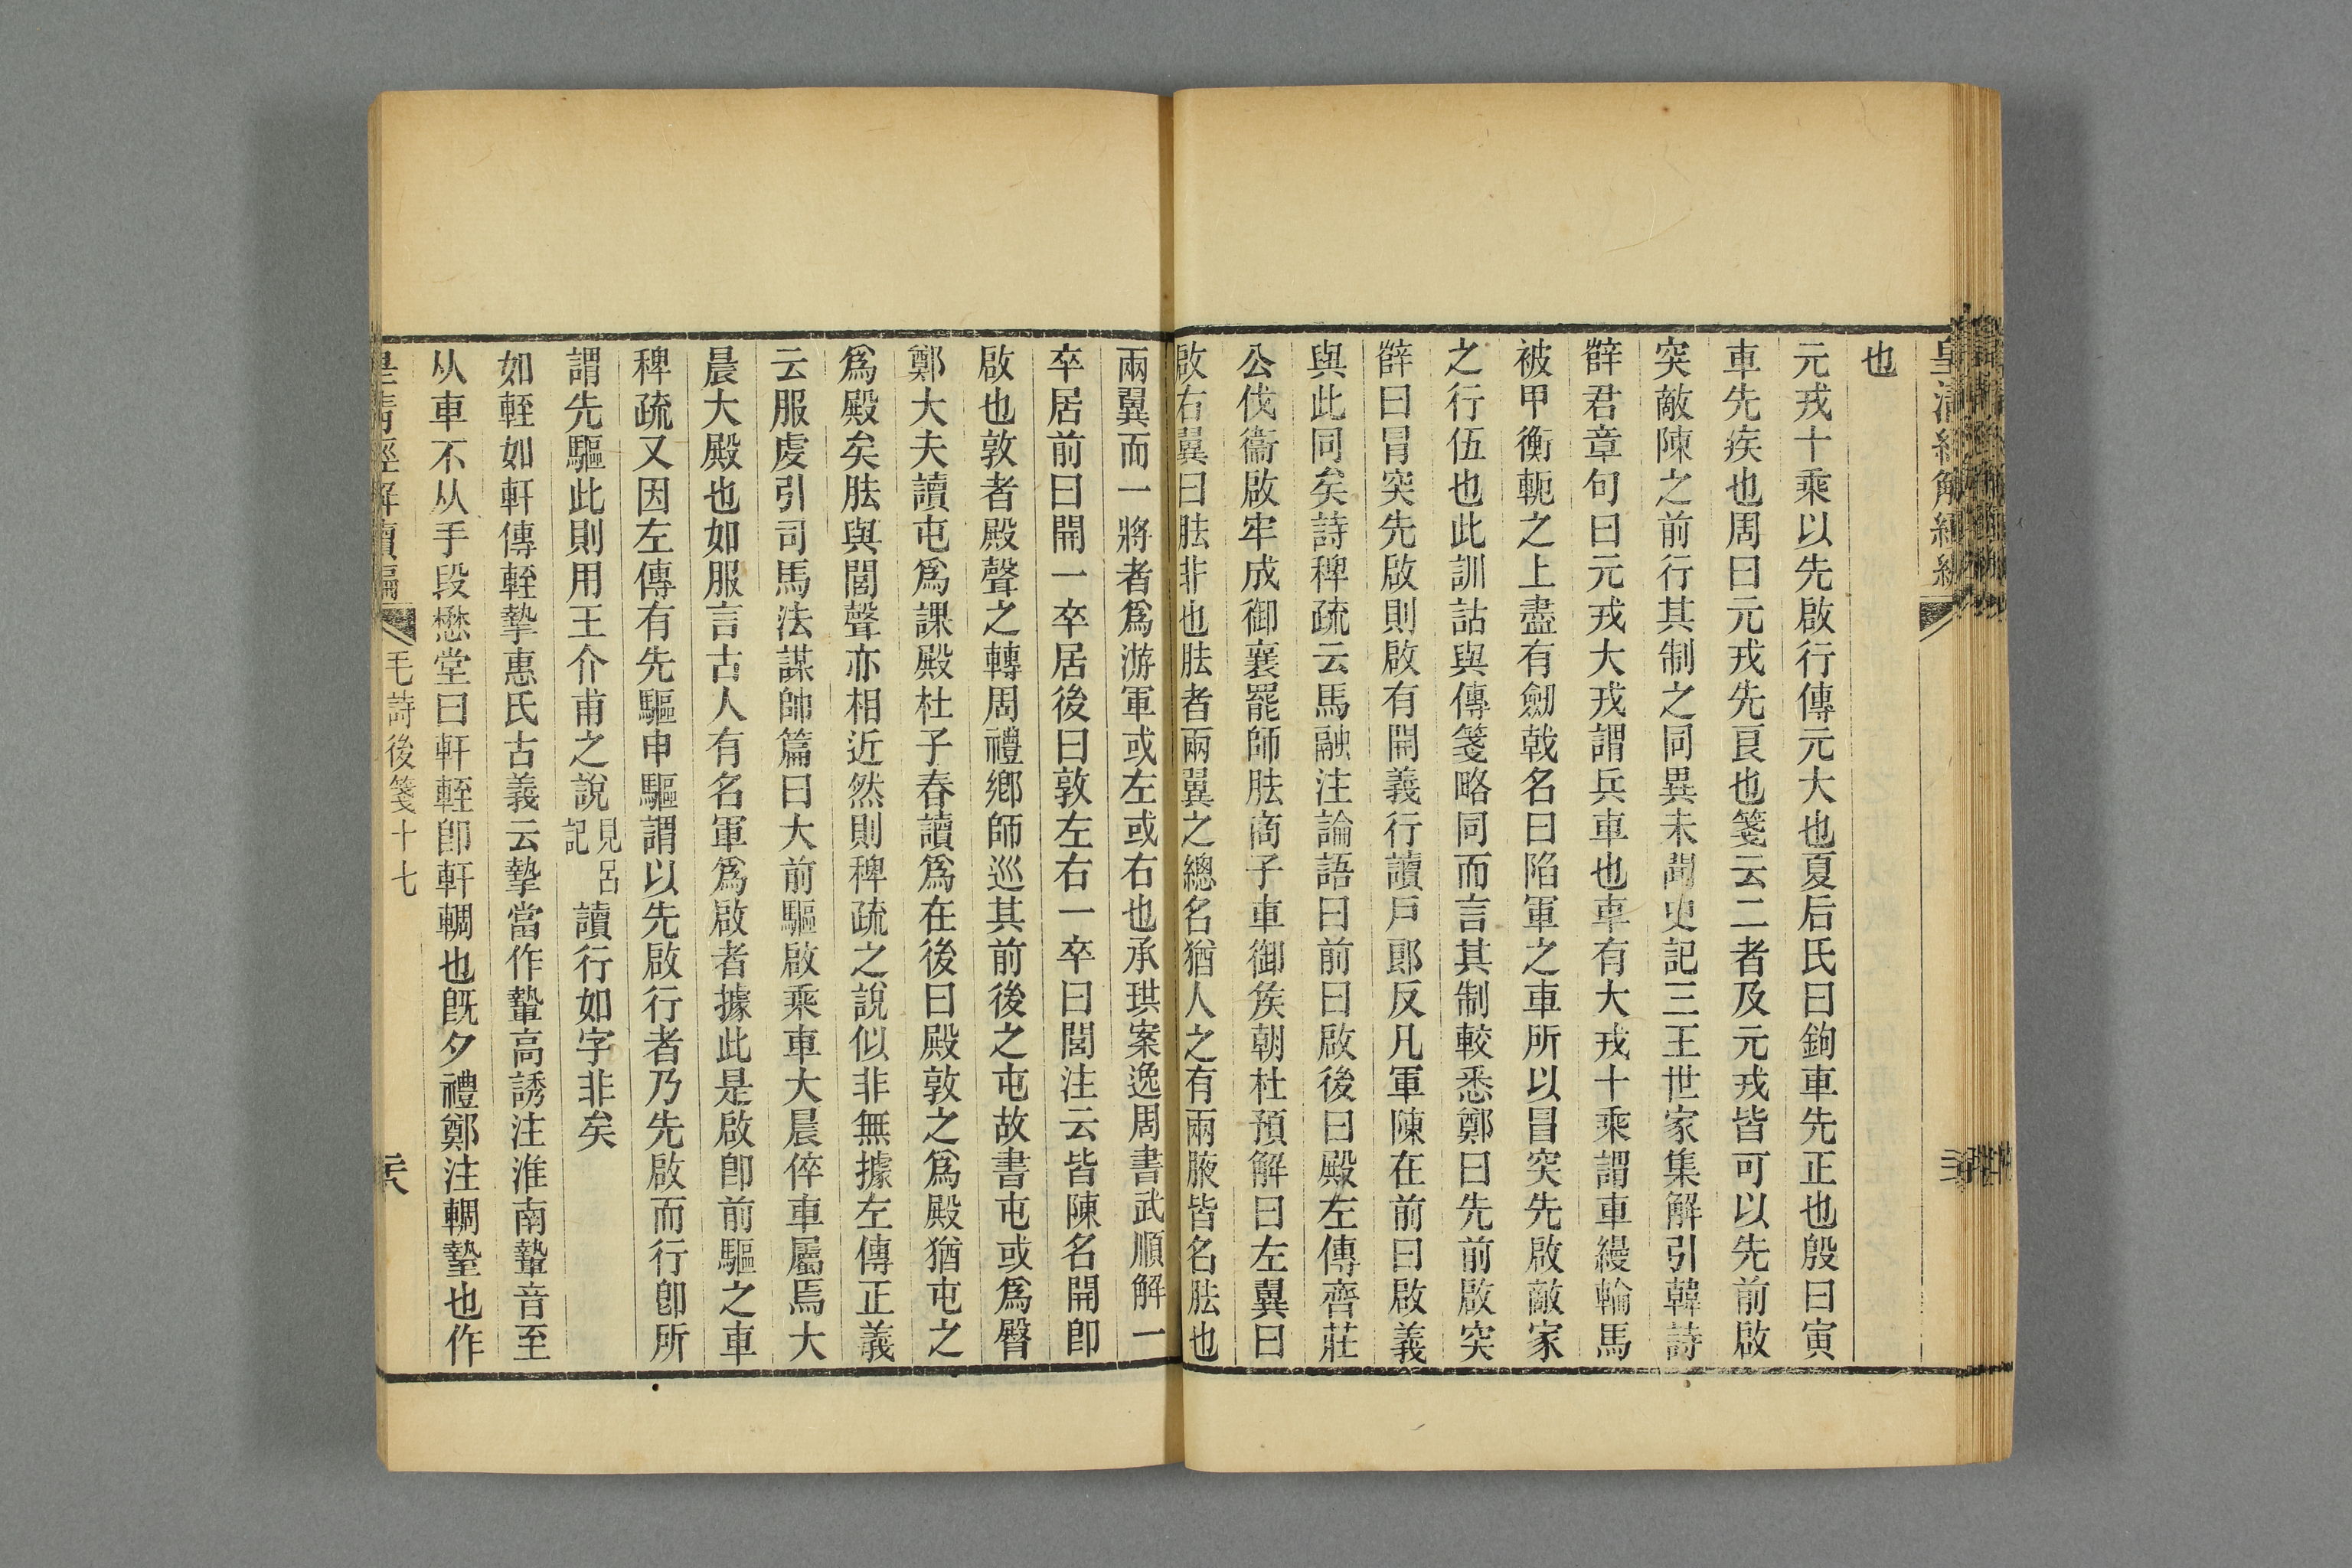 皇清經解續編
也
元戎十乘以先啟行傳元大也夏后氏曰鉤車先正也殷曰寅
車先疾也周曰元戎先良也箋云二者及元戎皆可以先前啟
突敵陳之前行其制之同異未聞史記三王世家集解引韓詩
薛君章句曰元戎大戎謂兵車也車有大戎十乘謂車縵輪馬
被甲衡軛之上盡有劒戟名曰陷軍之車所以冒突先啟敵家
之行伍也此訓詁與傳箋略同而言其制較悉鄭曰先前啟突
薛曰冒突先啟則啟有開義行讀戶郎反凡軍陳在前曰啟義
與此同矣詩稗疏云馬融注論語曰前曰啟後曰殿左傳齊莊
公伐衞啟牢成御襄罷師胠商子車御矦朝杜預解曰左翼曰
啟右翼曰胠非也胠者兩翼之總名猶人之有兩腋皆名胠也
兩翼而一將者爲游軍或左或右也承珙案逸周書武順解一
卒居前曰開一卒居後曰敦左右一卒曰閭注云皆陳名開卽
啟也敦者殿聲之轉周禮鄉師巡其前後之屯故書屯或爲臀
鄭大夫讀屯爲課殿杜子春讀爲在後曰殿敦之爲殿猶屯之
爲殿矣胠與閭聲亦相近然則稗疏之說似非無據左傳正義
云服虔引司馬法謀帥篇曰大前驅啟乘車大晨倅車屬焉大
晨大殿也如服言古人有名軍爲啟者據此是啟卽前驅之車
稗疏又因左傳有先驅申驅謂以先啟行者乃先啟而行卽所
謂先驅此則用王介甫之說見呂記讀行如字非矣
如輊如軒傳輊摯惠氏古義云摯當作蟄高誘注淮南蟄音至
从車不从手段懋堂曰軒輊卽軒輖也旣夕禮鄭注輖蟄也作
皇清經解續編
毛詩後箋十七